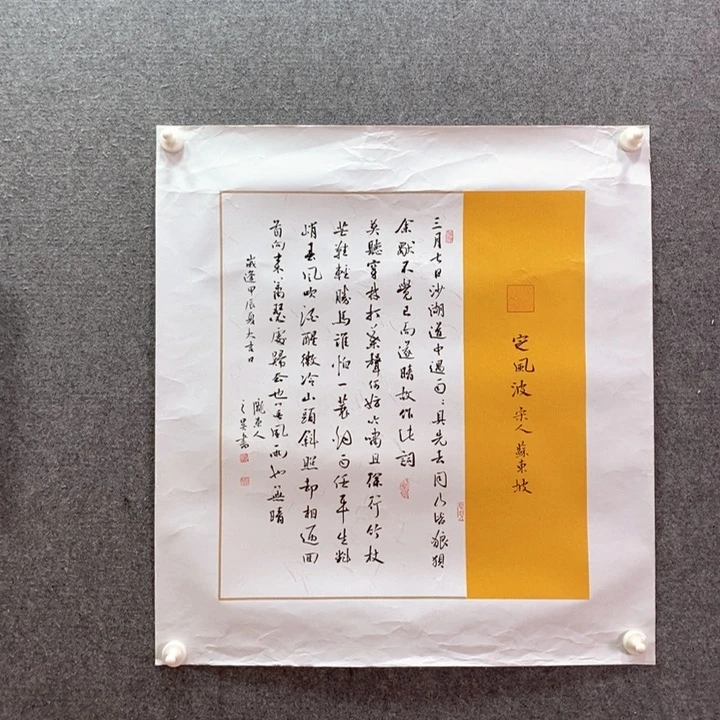 定風波 宋人蘇東坡
三月七日沙湖道中遇雨〻具先去同行皆狼狽
余獨不覺已而遂晴故作此詞
莫聽穿林打葉聲何妨吟嘯且徐行竹杖
芒鞋輕勝馬誰怕一蓑烟雨任平生料
峭春風吹酒醒微冷山頭斜照却相迎回
首向來蕭瑟處歸去也無風雨也無晴
歲逢甲辰夏大吉日